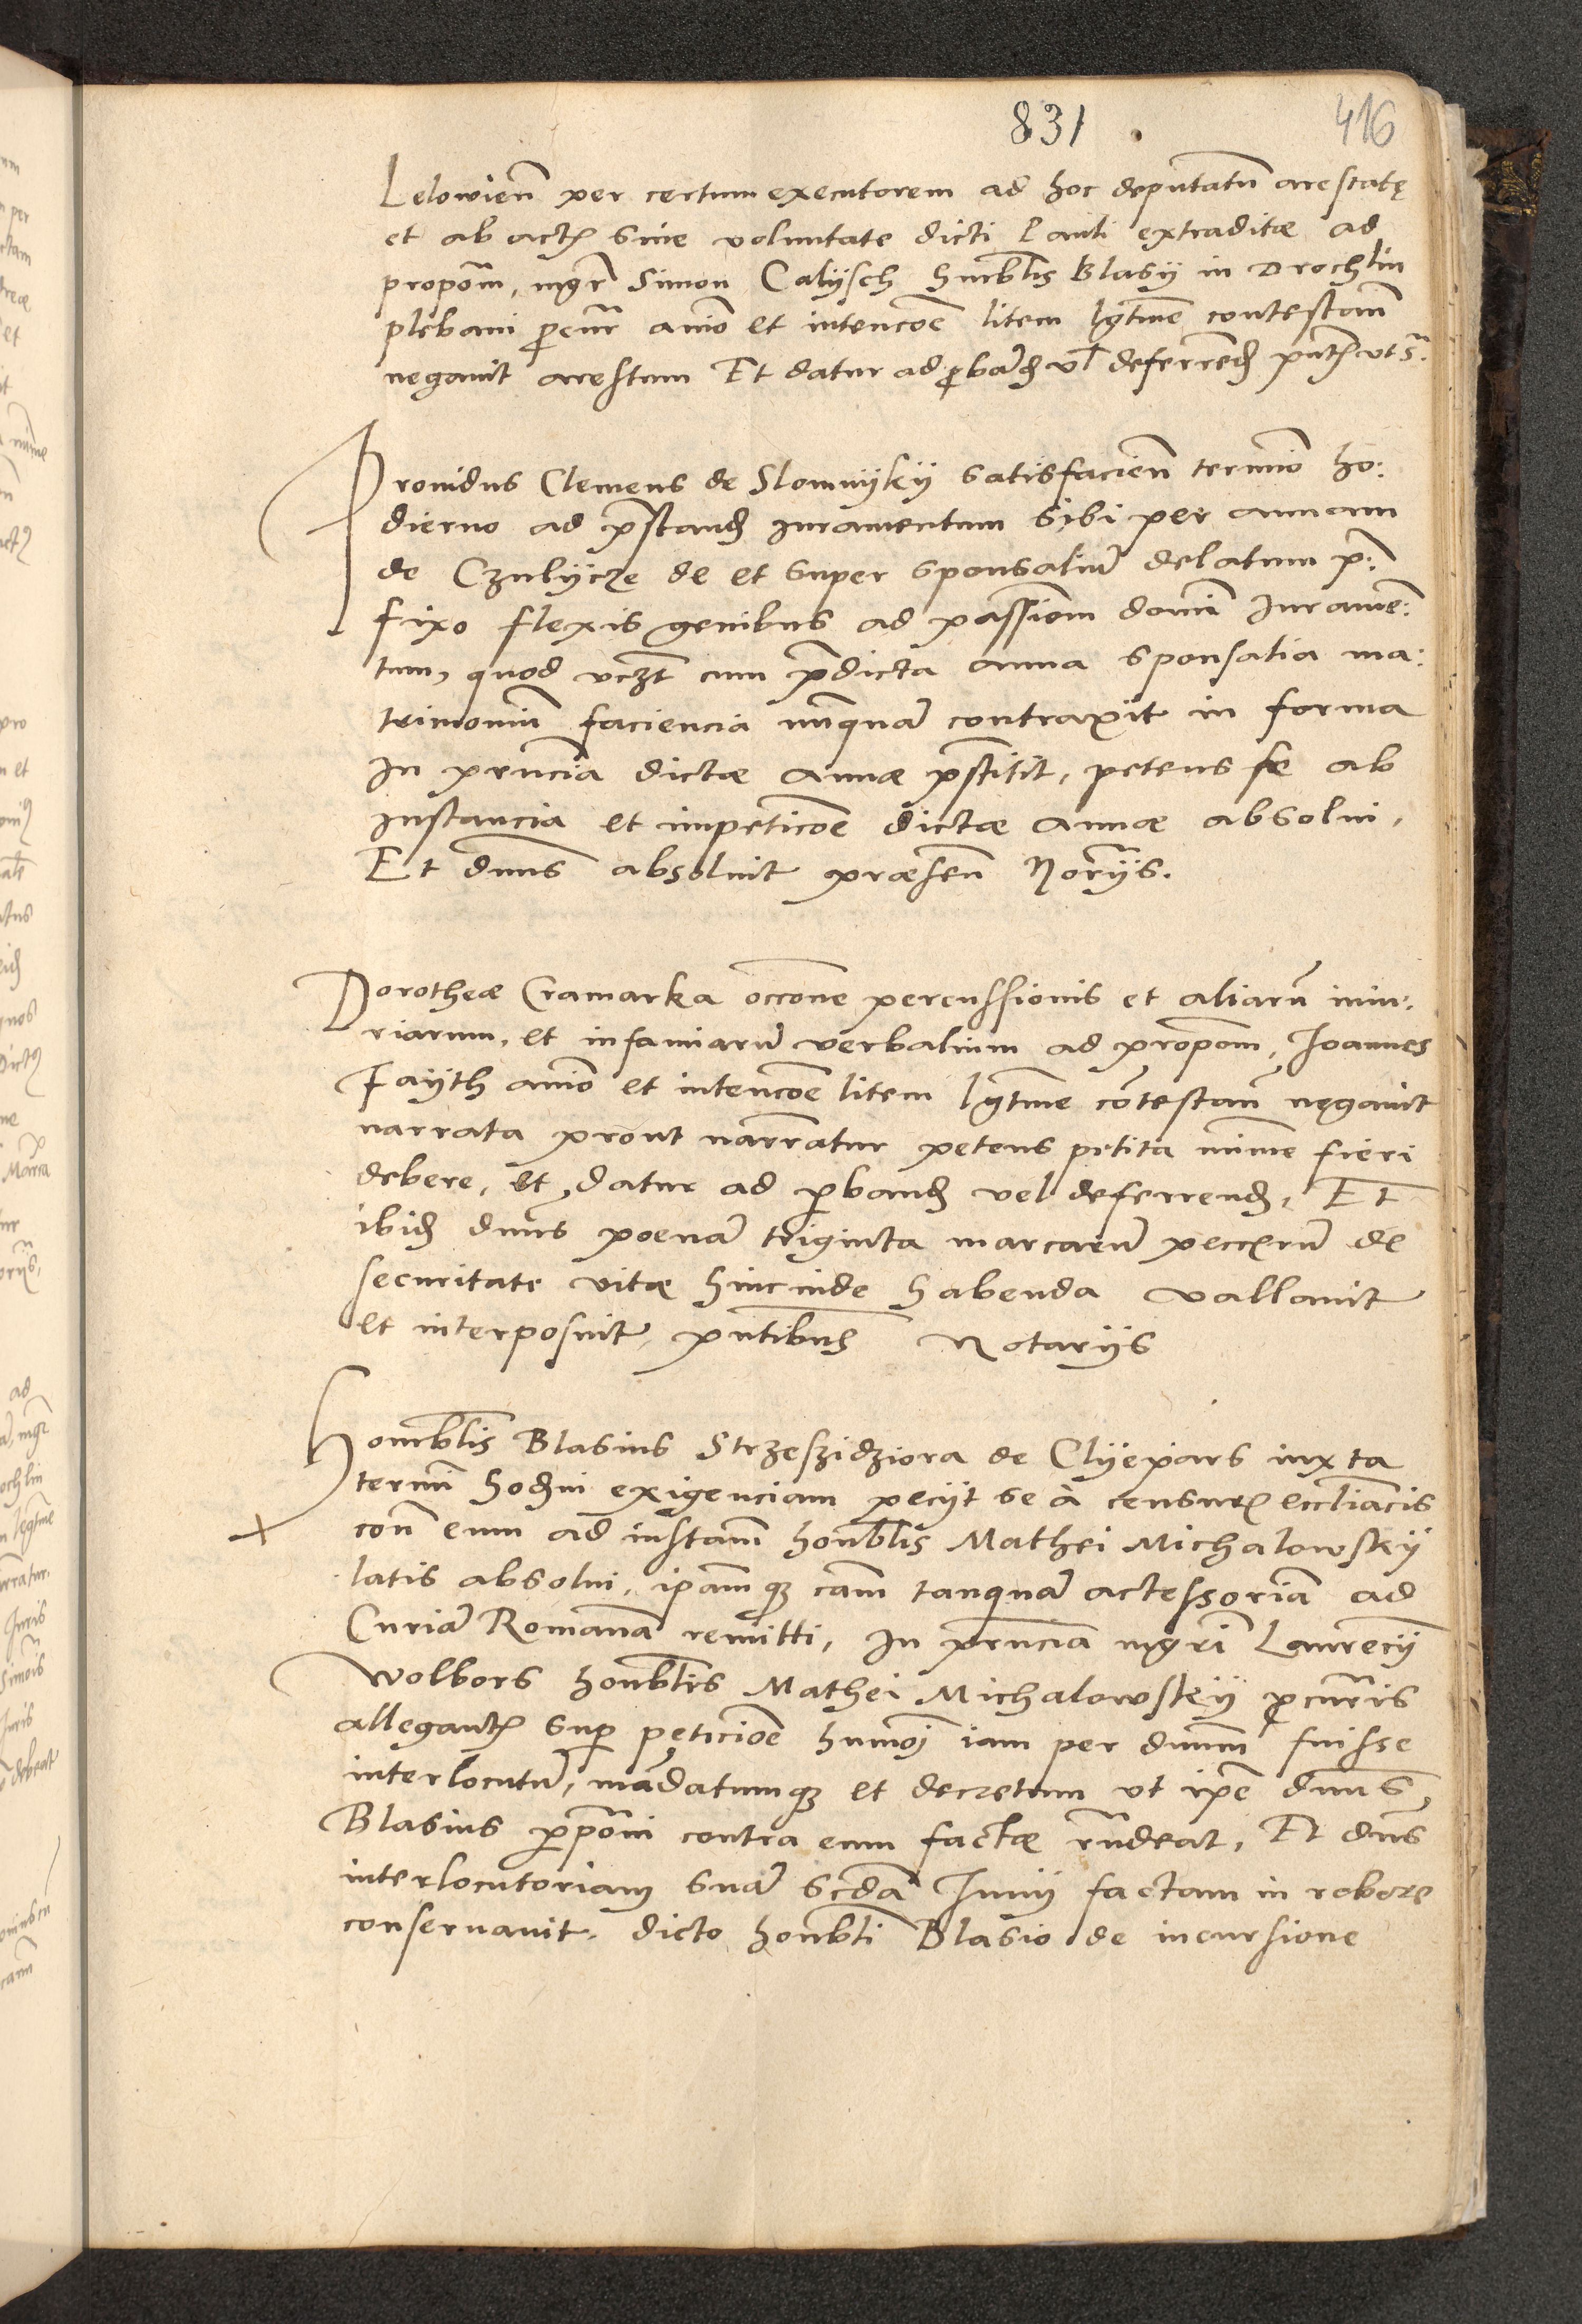 831 416
Lelowien̄ per certum executorem ad hoc deputatū arestatę
et ab actis sine voluntate dicti Pauli extraditæ ad
propōm, mgr̄ Simon Calÿsch hnrblis Blasÿ in Drochlin
plebani procur̄ animo et intencōe litem lgtme contestan̄
negauit arestum Et datur ad proband vl deferrend pntibus vt sͣ.
Prouidus Clemens de Slomnÿkÿ satisfacien̄ termino ho:
dierno ad prestand Iuramentum sibi per annam
de Czulÿcze de et super sponsaliū delatum p̄:
fixo flexis genibus ad passionem domini Iuramē:
tum, quod vczt cum p̄dicta anna sponsalia ma:
trimoniū faciencia nunquā contraxit in forma
In prn̄cia dictæ annæ p̄stitit, petens se ab
instancia et impeticōe dictæ annæ absolui,
Et dnus absoluit præsen̄ Norÿs.
Dorotheæ Cramarka occōne percussionis et aliarū iniu:
riarum, et infamiarū verbalium ad propōm, Ioannes
Fayth animo et intencōe litem lgtme cōtestan̄ negauit
narrata prout narrantur petens petita minime fieri
debere, et datur ad proband vel deferrend, Et
ibid dnus poenā triginta marcarū peccerū de
securitate vitæ hincinde habenda vallauit
et interposuit, pntibus Notarÿs
Honrblis Blasius Strzeszidziora de Clÿepars iuxta
termi hodni exigenciam peciÿt se à censuris eccliacis
con̄ eum ad instam̄ honrblis Mathei Michalowskÿ
latis absolui, ipamq cam̄ tanquā actessoriā ad
Curiā Romanā remitti, In prn̄cia mgri Laurecÿ
Wolbors honrblis Mathei Michalowskÿ procuris
allegantis sup peticiōe humōi iam per dnum fuisse
interlocutū, mādatumq et decretum vt ipe dnus
Blasius propōni contra eum factæ rn̄deat, Et dns
interlocutoriam suā scdā Iunÿ factam in robore
conseruauit, dicto honrbli Blasio de incursione